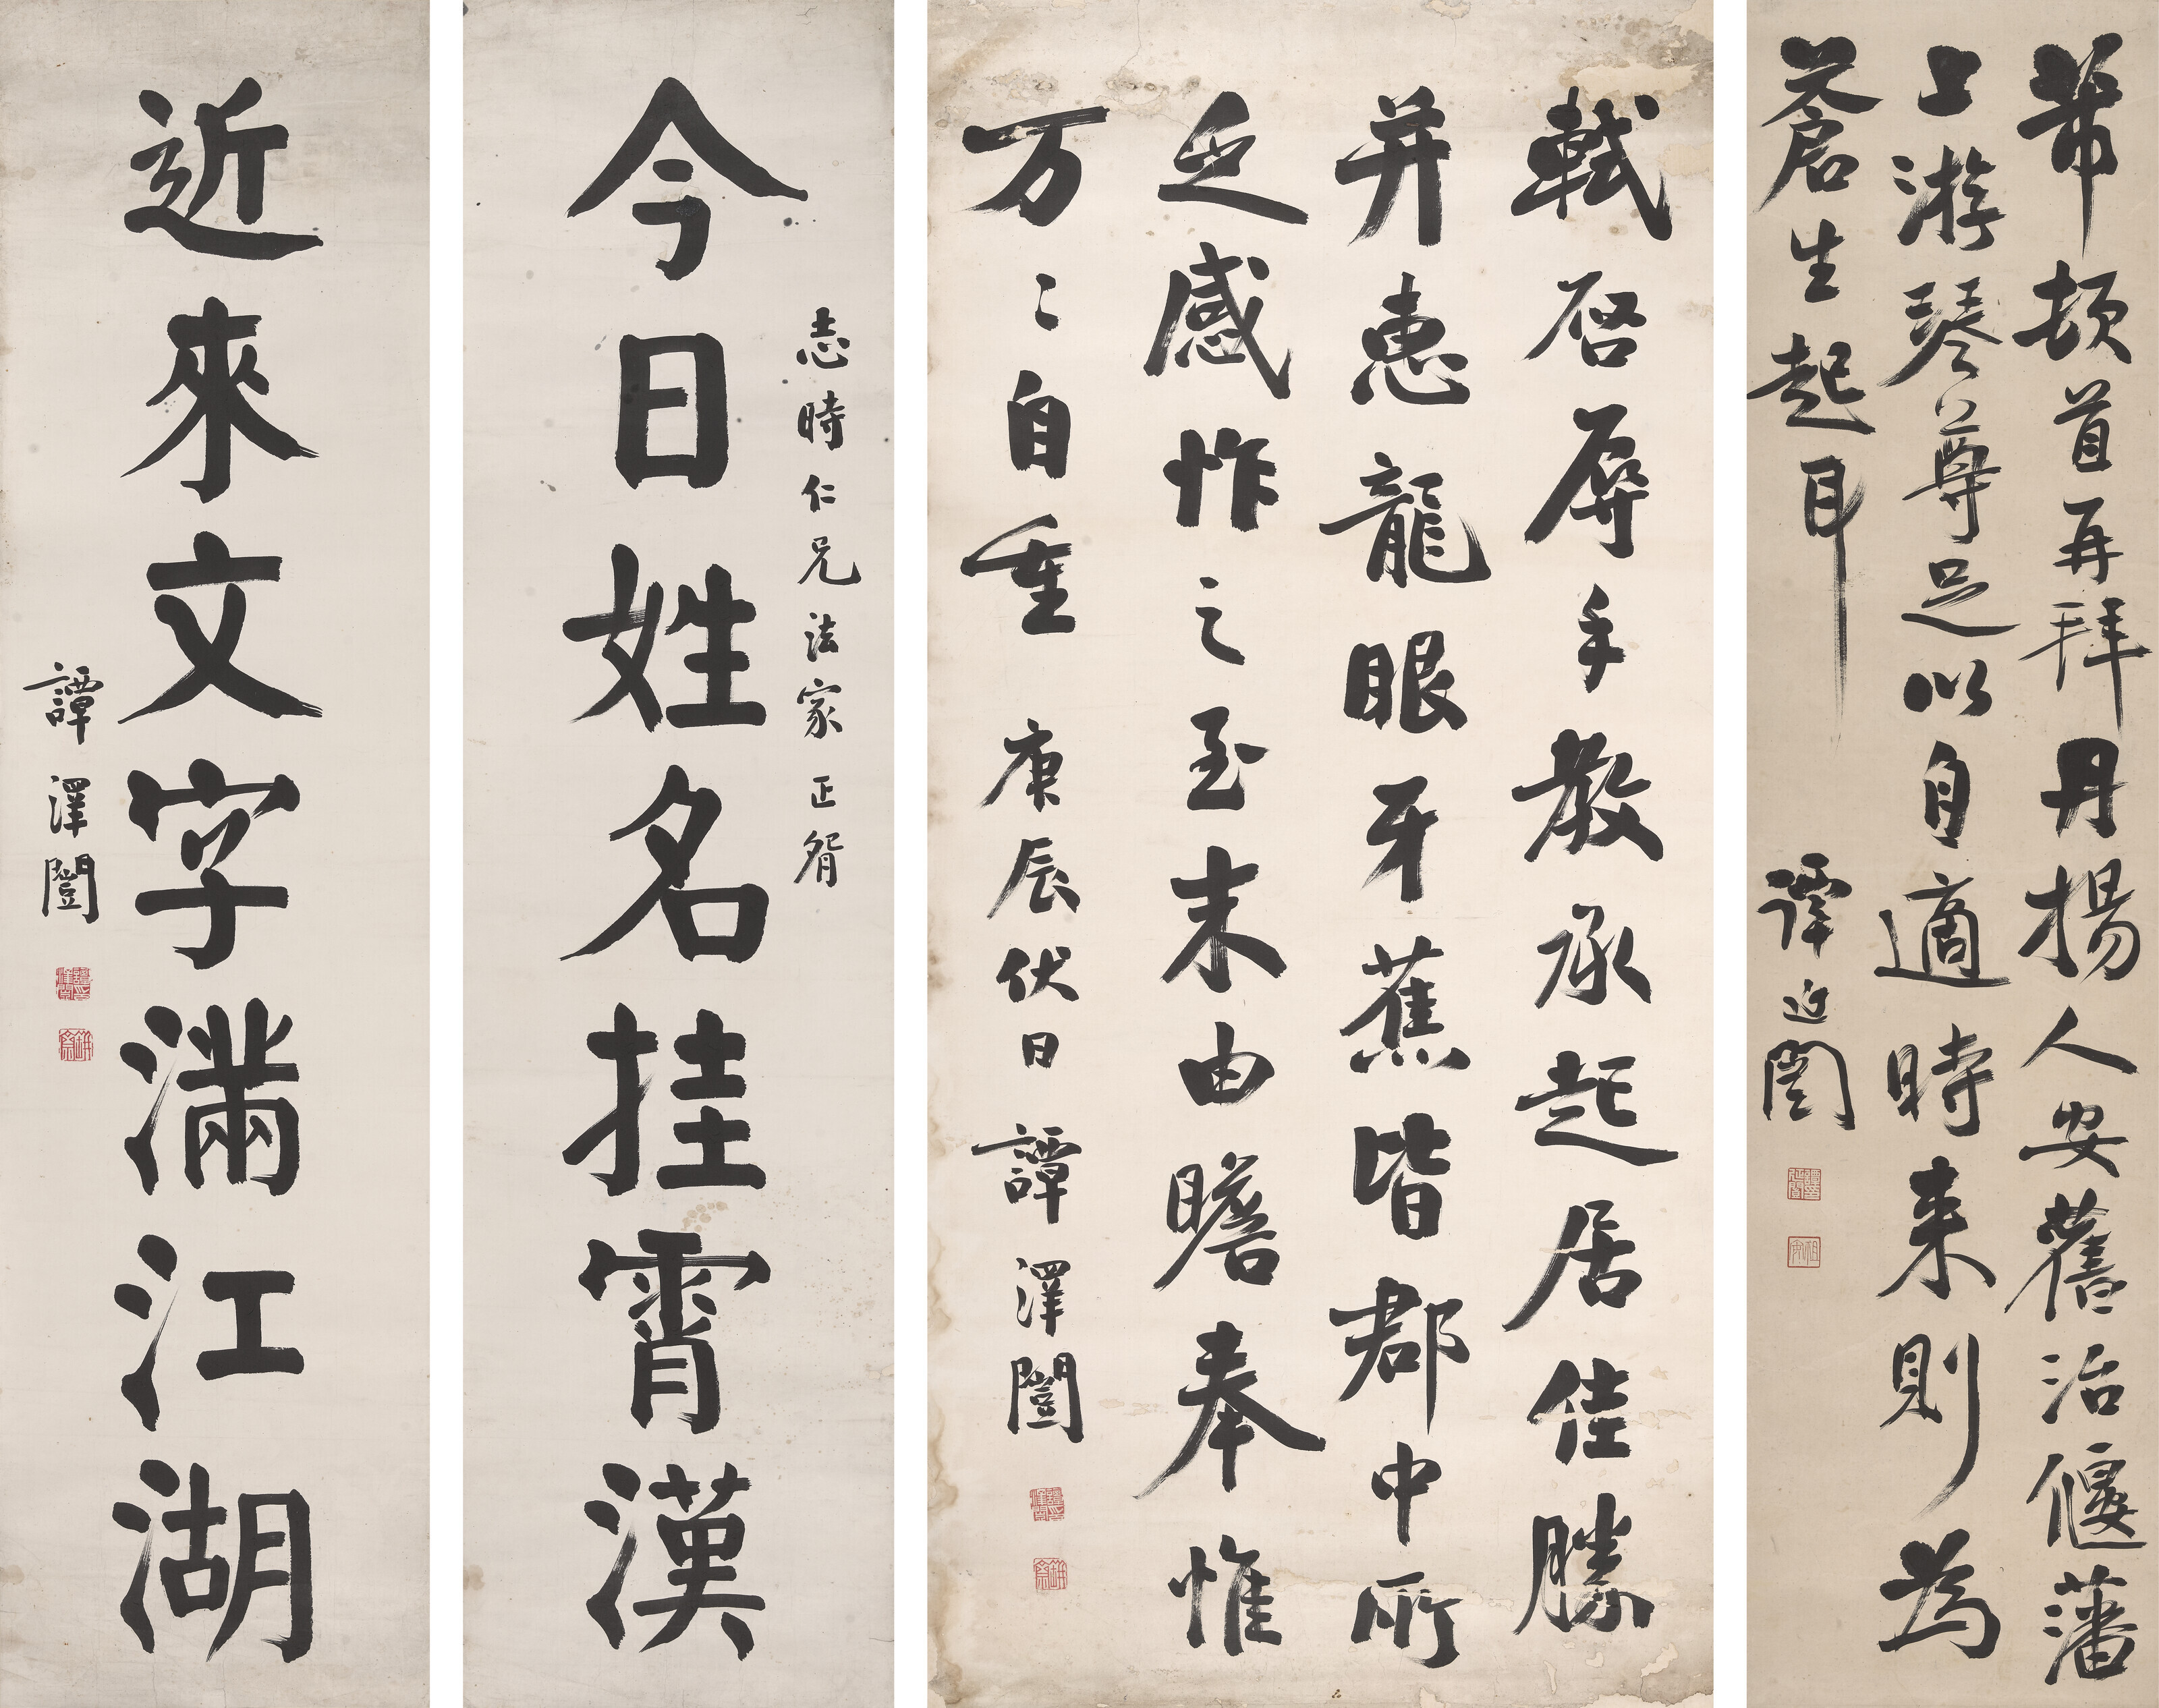 芾頓首再拜丹揚人安舊治偃藩
上游琴尊足以自適時来則為
蒼生起耳
譚延闓
軾啓辱手教承起居佳勝
并惠龍眼牙蕉皆郡中所
乏感怍之至末由瞻奉惟
万〻自重 庚辰伏日 譚澤闓
志時仁兄法家正㡰
今日姓名挂霄漢
近來文字滿江湖
譚澤闓